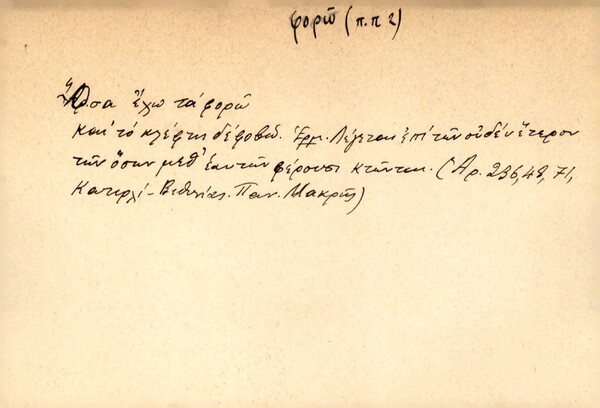 φορῶ (π.π 2)
Ὅσα ἔχω τά φορῶ
και τό κλέφτη δέ φοβῶ. Ἑρμ. Λέγεται ἐπί τῶν οὐδέν ἕτερον
τῶν ὅσων μεθ' ἑαυτῶν φέρουσι κτῶνται. (Ἀρ. 236, 48, 71,
Κατιρλί - Βιθυνίας. Παν. Μακρῆς)